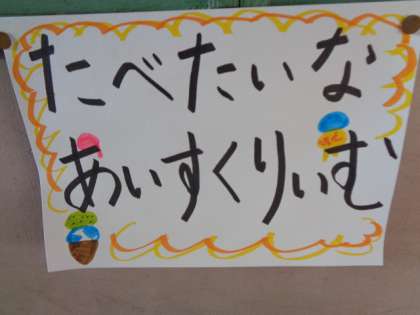 たべたいな
あいすくりぃむ